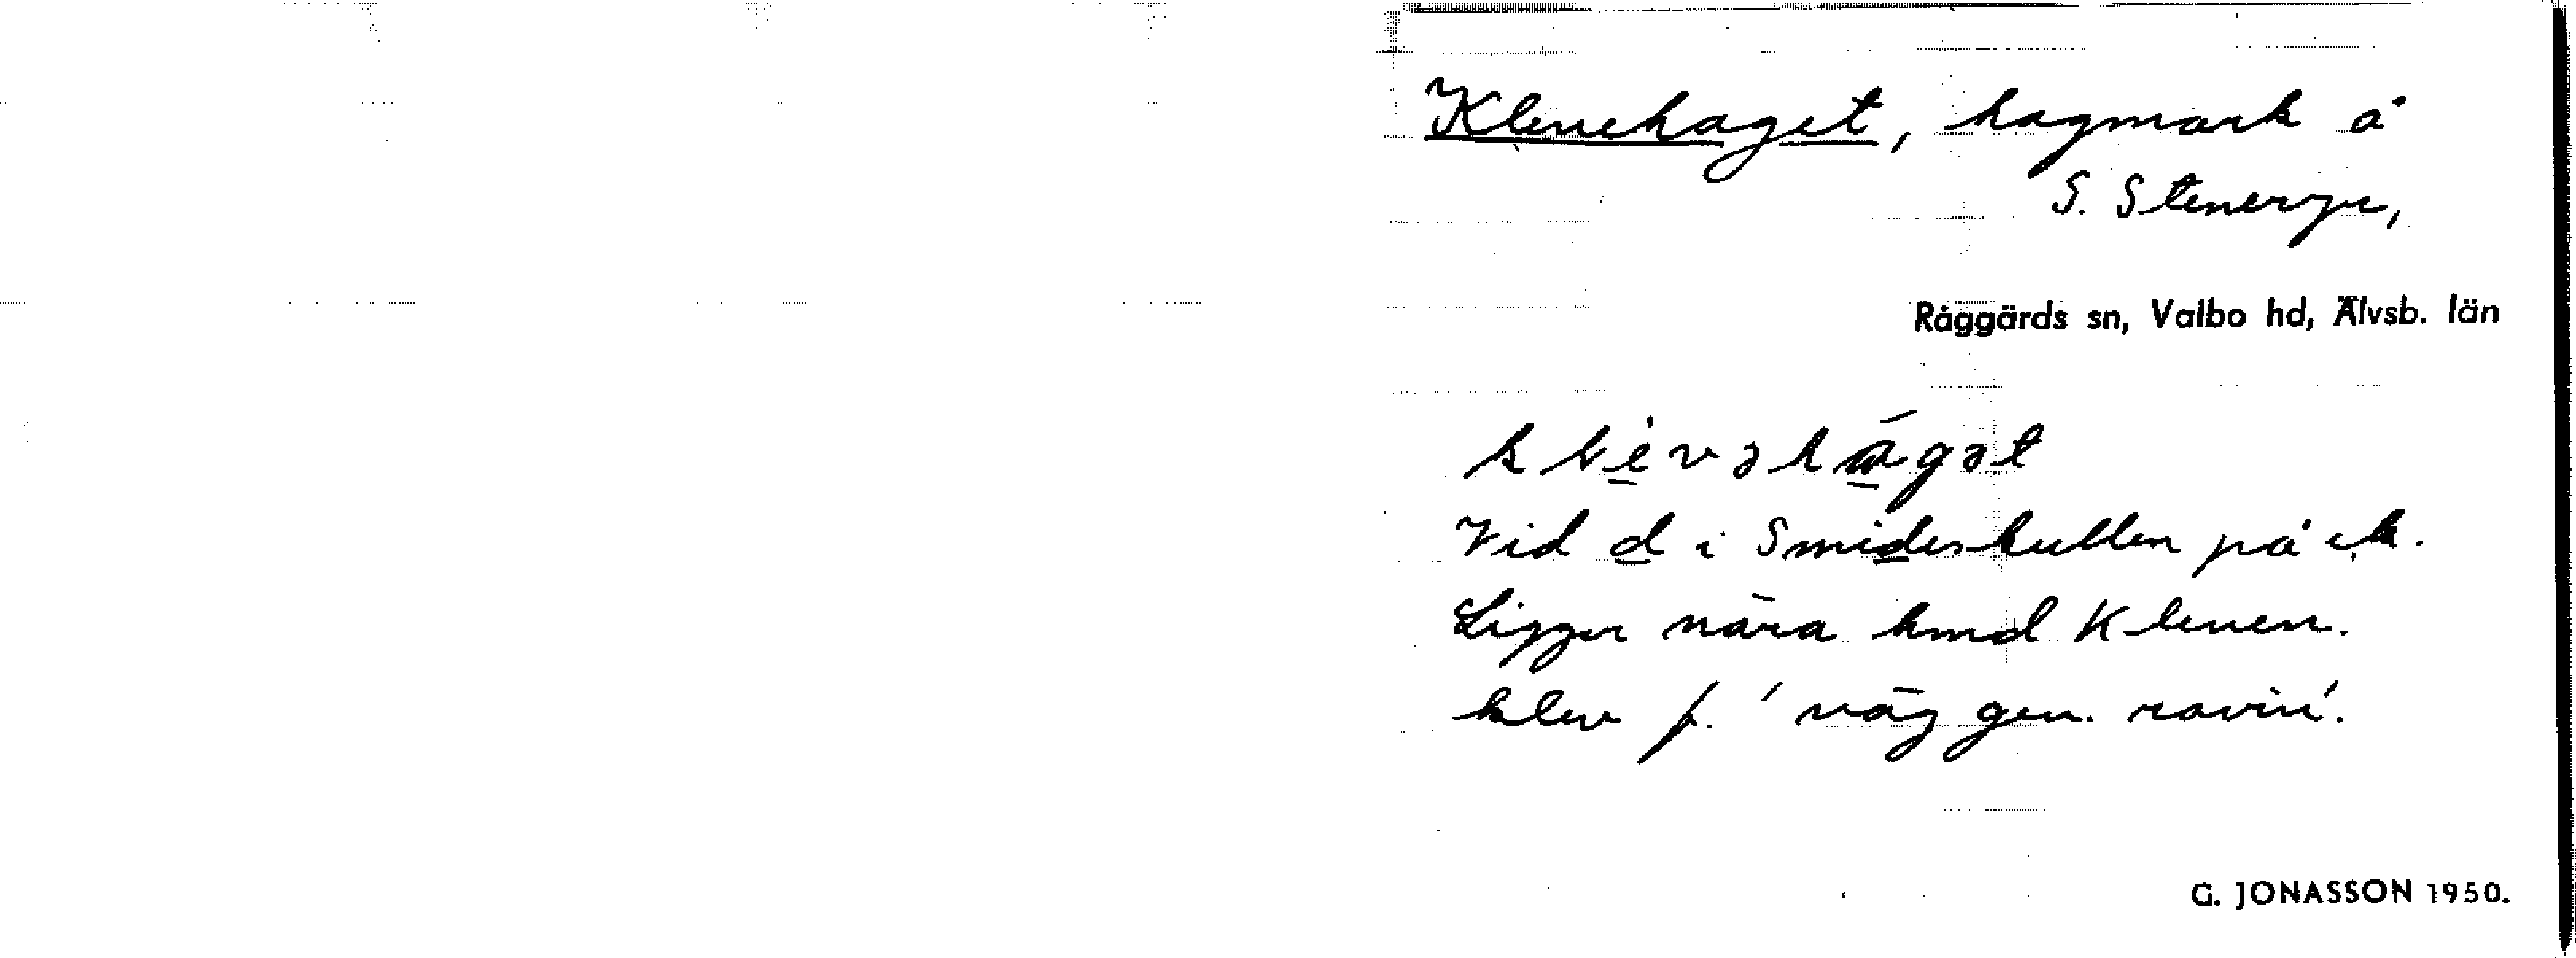 Klevehaget, hagmark å
S. Stenerye,
Råggärds sn, Valbo hd, Älvsb. län
klèvəhágət
Vid d i Smideskullen på ek.
Ligger nära hmd Kleven.
klev f. 'väg gen. ravin'.
G. JONASSON 1950.